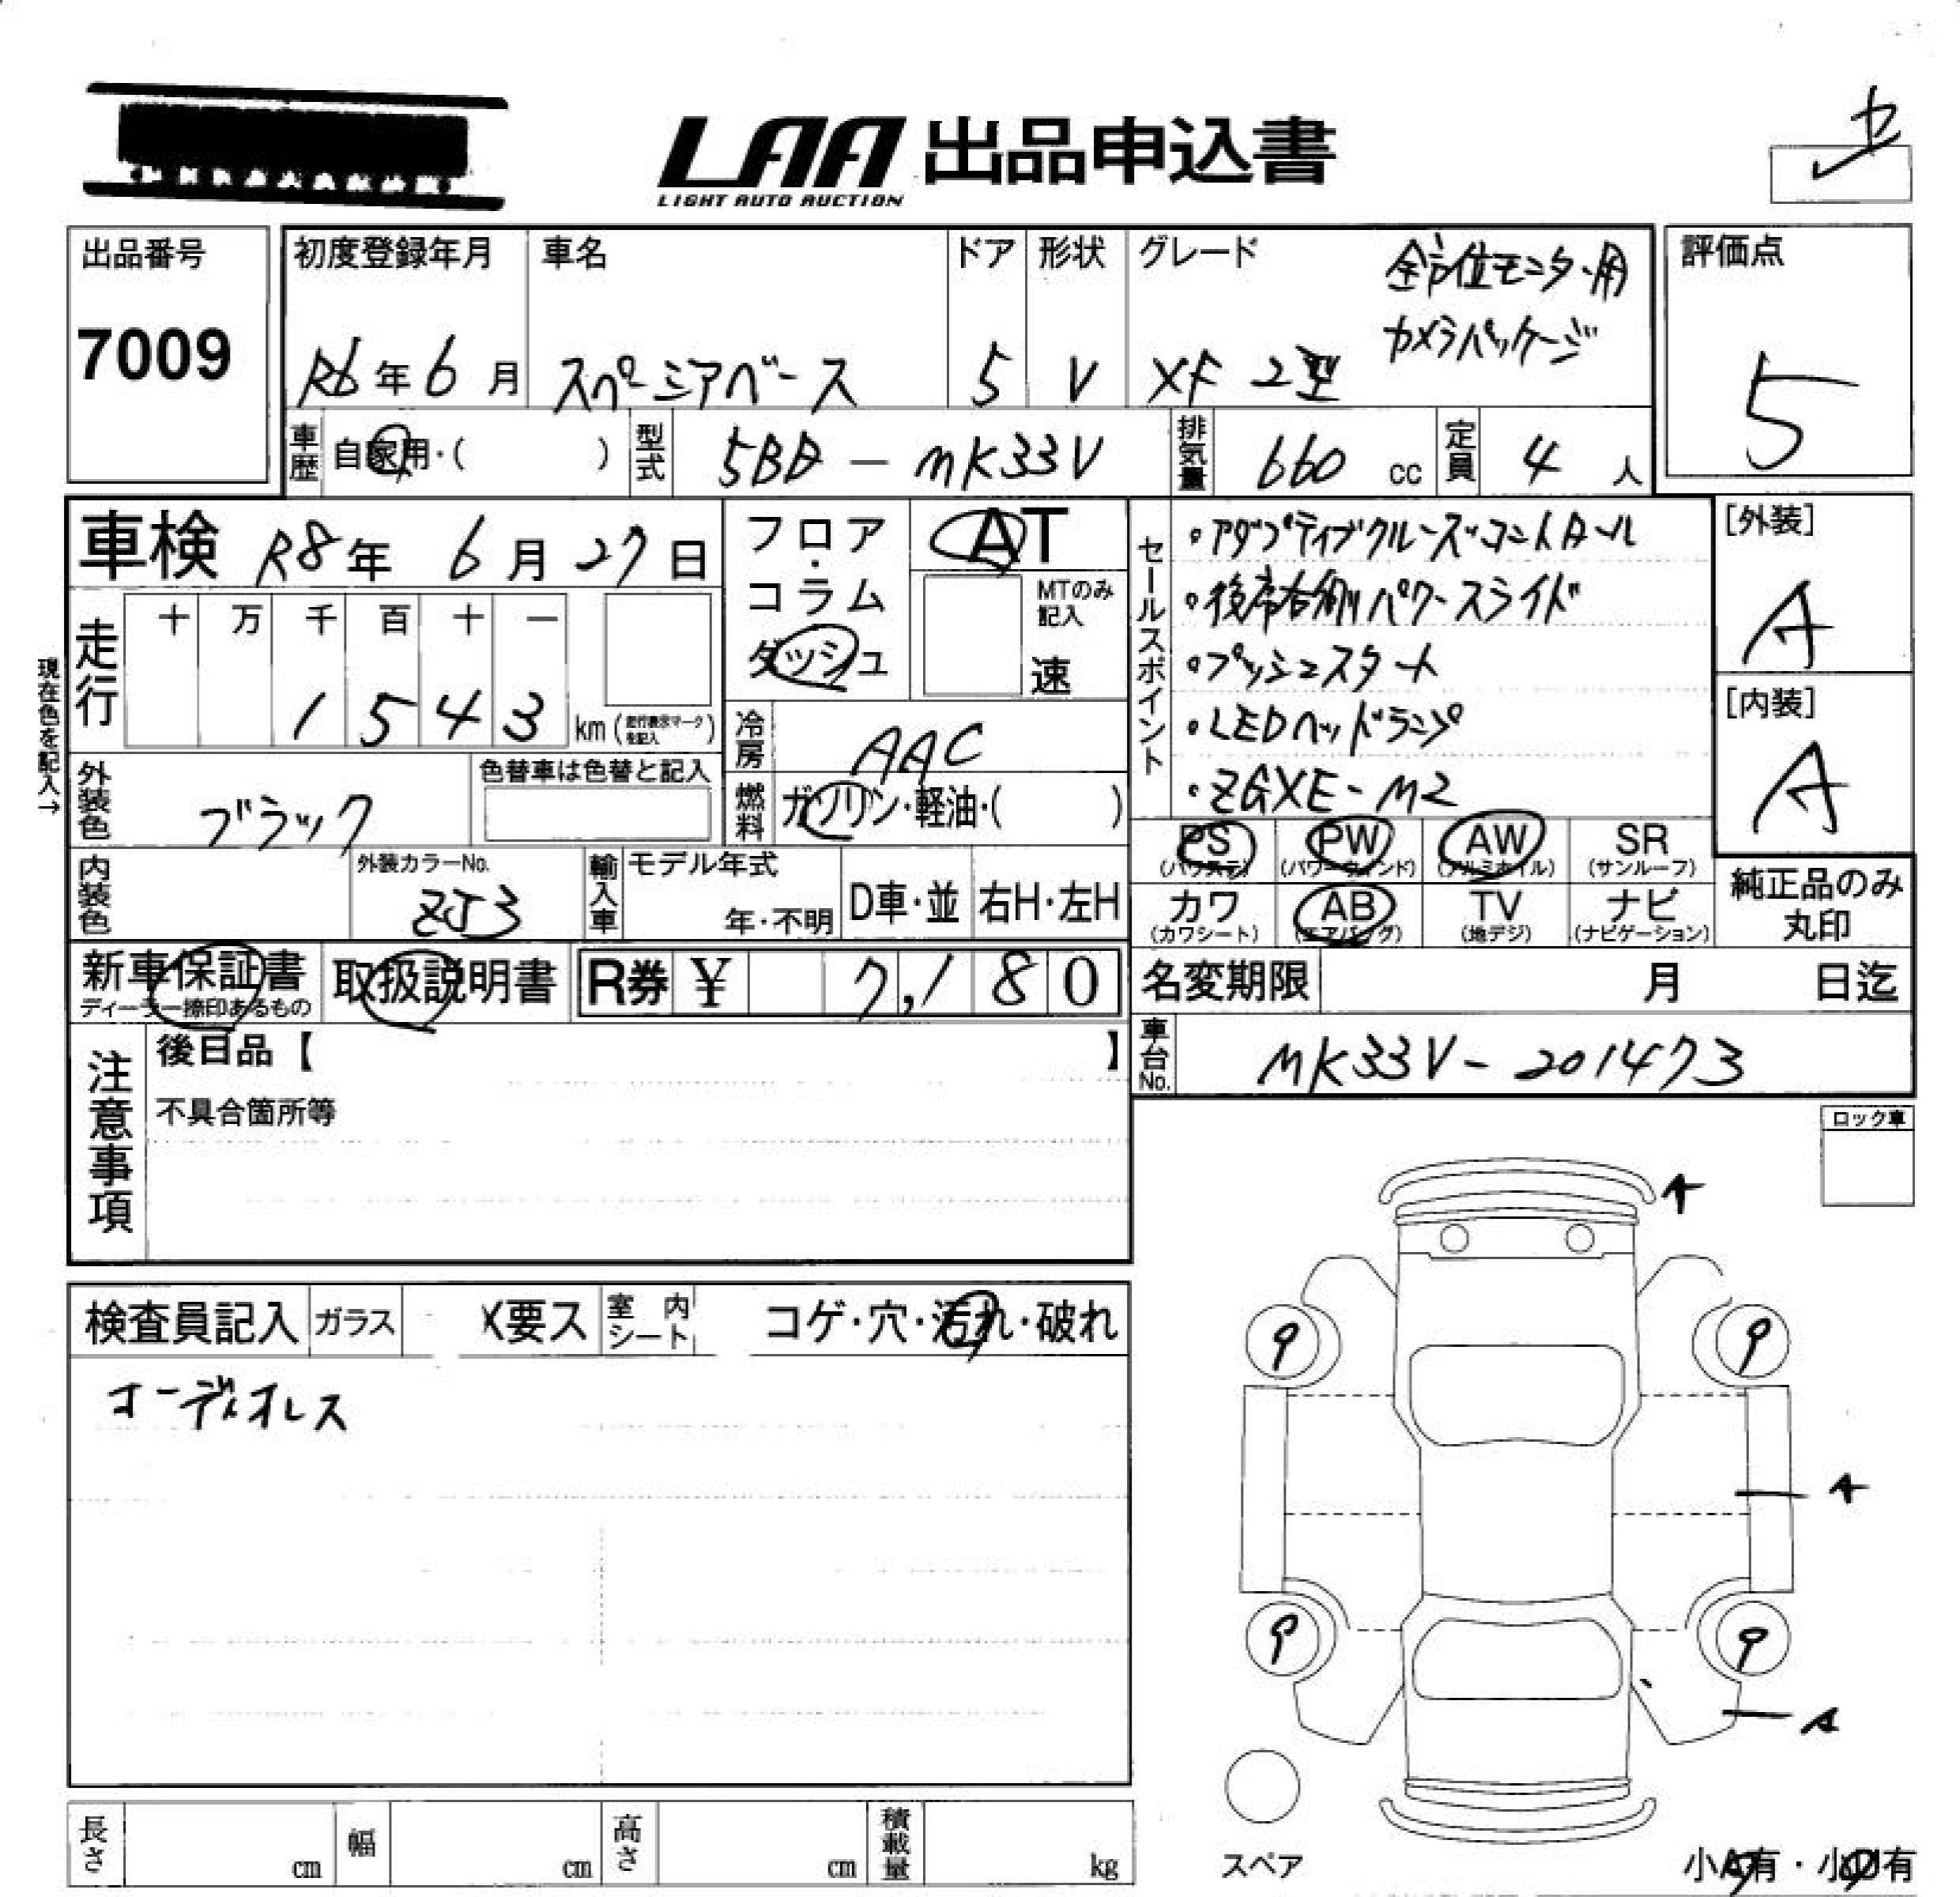 LAA 出品申込書
LIGHT AUTO AUCTION
セ
出品番号
7009
初度登録年月
R6年6月
車名
スペーシアベース
ドア
5
形状
V
グレード
XF 2型
全方位モニター用
カメラパッケージ
評価点
5
車歴
自家用・( )
型式
5BD-MK33V
排気量
660 cc
定員
4 人
車検 R8年 6月27日
フロア・コラム
ダッシュ
AT
MTのみ記入
速
走行
十 万 千 百 十 一
1 5 4 3 km (走行表示マークを記入)
現在色を記入→
冷房
AAC
外装色
ブラック
色替車は色替と記入
燃料
ガソリン・軽油・( )
内装色
外装カラーNo.
ZJ3
輸入車
モデル年式
年・不明
D車・並
右H・左H
セールスポイント
・アダプティブクルーズコントロール
・後席右側パワースライド
・プッシュスタート
・LEDヘッドランプ
・ZGXE-M2
[外装]
A
[内装]
A
PS
(パワステ)
PW
(パワーウィンド)
AW
(アルミホイル)
SR
(サンルーフ)
カワ
(カワシート)
AB
(エアバッグ)
TV
(地デジ)
ナビ
(ナビゲーション)
純正品のみ
丸印
新車保証書
ディーラー捺印あるもの
取扱説明書
R券 ¥ 7,180
名変期限 月 日迄
車台No.
MK33V-201473
注意事項
後日品【 】
不具合箇所等
ロック車
検査員記入
ガラス
X要ス
室内シート
コゲ・穴・汚れ・破れ
オーディオレス
A
9
9
A
9
9
A
スペア
小A有・小U有
長さ cm
幅 cm
高さ cm
積載量 kg